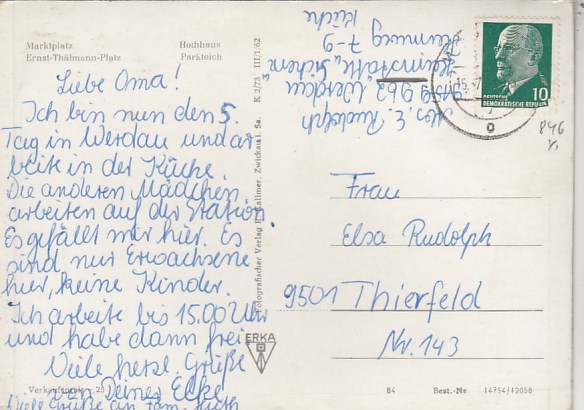 Marktplatz Hochhaus
Ernst-Thälmann-Platz Parkteich
Liebe Oma!
Ich bin nun den 5.
Tag in Werdau und ar
beite in der Küche.
Die anderen Mädchen
arbeiten auf der Station
Es gefällt mir hier. Es
sind nur Erwachsene
hier, keine Kinder.
Ich arbeite bis 15.00 Uhr
und habe dann frei
Viele herzl. Grüße
von Deiner Ecke
Viele Grüße an Fam.
Verkaufspreis
Fotografischer Verlag Zwickau i. Sa. K 2/73 III/1/62
ERKA
E. Rudolph
962 Werdau
7-9
Küche
10
DEUTSCHE
DEMOKRATISCHE REPUBLIK
846
Frau
Elsa Rudolph
9501 Thierfeld
Nr. 143
84 Best.-Nr 14754/12058